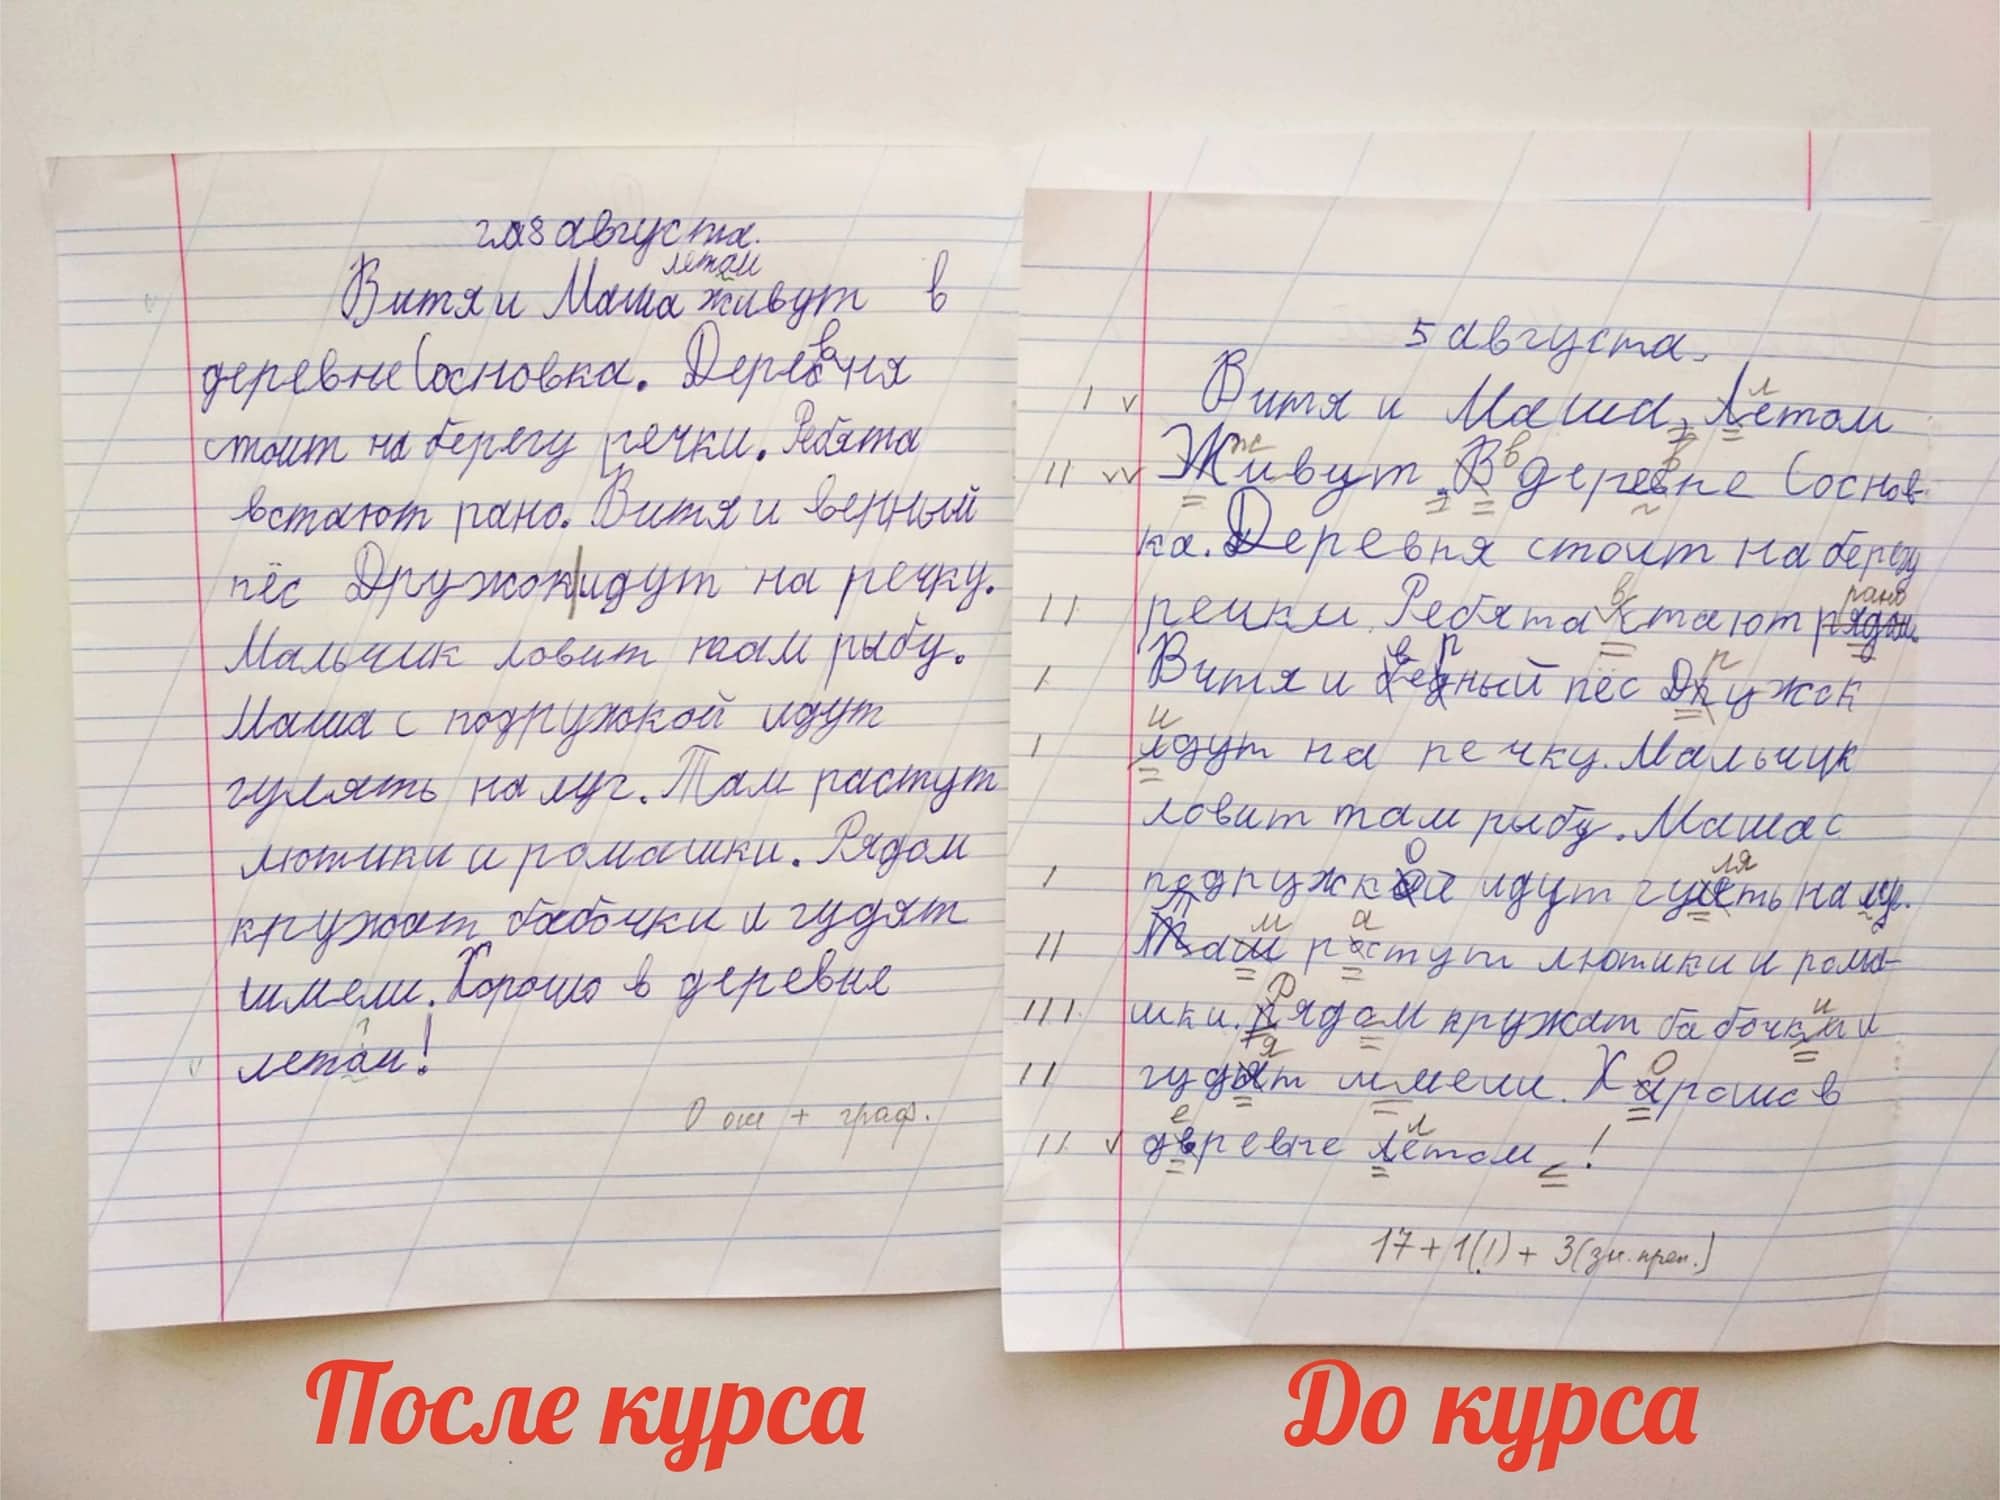 августа.
летом
Витя и Маша живут в
деревне Сосновка. Деревня
стоит на берегу речки. Ребята
встают рано. Витя и верный
пёс Дружок идут на речку.
Мальчик ловит там рыбу.
Маша с подружкой идут
гулять на луг. Там растут
лютики и ромашки. Рядом
кружат бабочки и гудят
шмели. Хорошо в деревне
летом!
0 ош + граф.
После курса
5 августа.
Витя и Маша, Летом
Живут. В деревне Соснов-
ка. Деревня стоит на берегу
речки. Ребята стают рано
Витя и верный пёс Дружок
идут на речку. Мальчик
ловит там рыбу. Маша с
подружкой идут гулять на луг.
Там растут лютики и рома-
шки. Рядом кружат бабочки и
гудят шмели. Харошо в
деревне летом !
17 + 1(!) + 3 (зн. преп.)
До курса